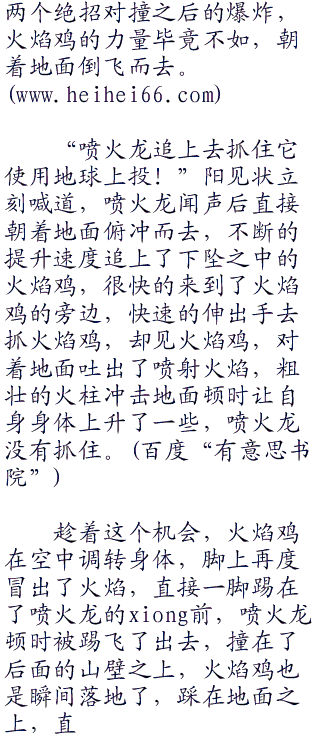 两个绝招对撞之后的爆炸，
火焰鸡的力量毕竟不如，朝
着地面倒飞而去。
(www.heihei66.com)
“喷火龙追上去抓住它
使用地球上投！”阳见状立
刻喊道，喷火龙闻声后直接
朝着地面俯冲而去，不断的
提升速度追上了下坠之中的
火焰鸡，很快的来到了火焰
鸡的旁边，快速的伸出手去
抓火焰鸡，却见火焰鸡，对
着地面吐出了喷射火焰，粗
壮的火柱冲击地面顿时让自
身身体上升了一些，喷火龙
没有抓住。(百度“有意思书
院”)
趁着这个机会，火焰鸡
在空中调转身体，脚上再度
冒出了火焰，直接一脚踢在
了喷火龙的xiong前，喷火龙
顿时被踢飞了出去，撞在了
后面的山壁之上，火焰鸡也
是瞬间落地了，踩在地面之
上，直